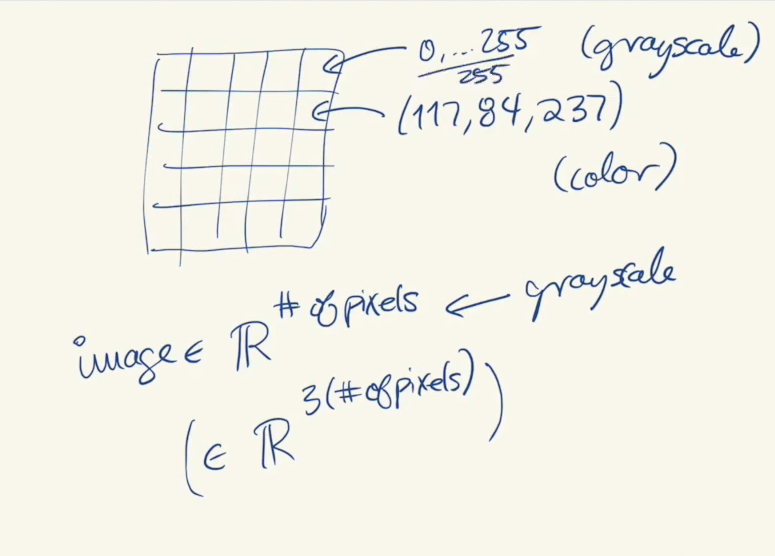 0,...255 (grayscale)
255
(117,84,237)
(color)
image ∈ ℝ^# of pixels ← grayscale
(∈ ℝ^3(# of pixels))